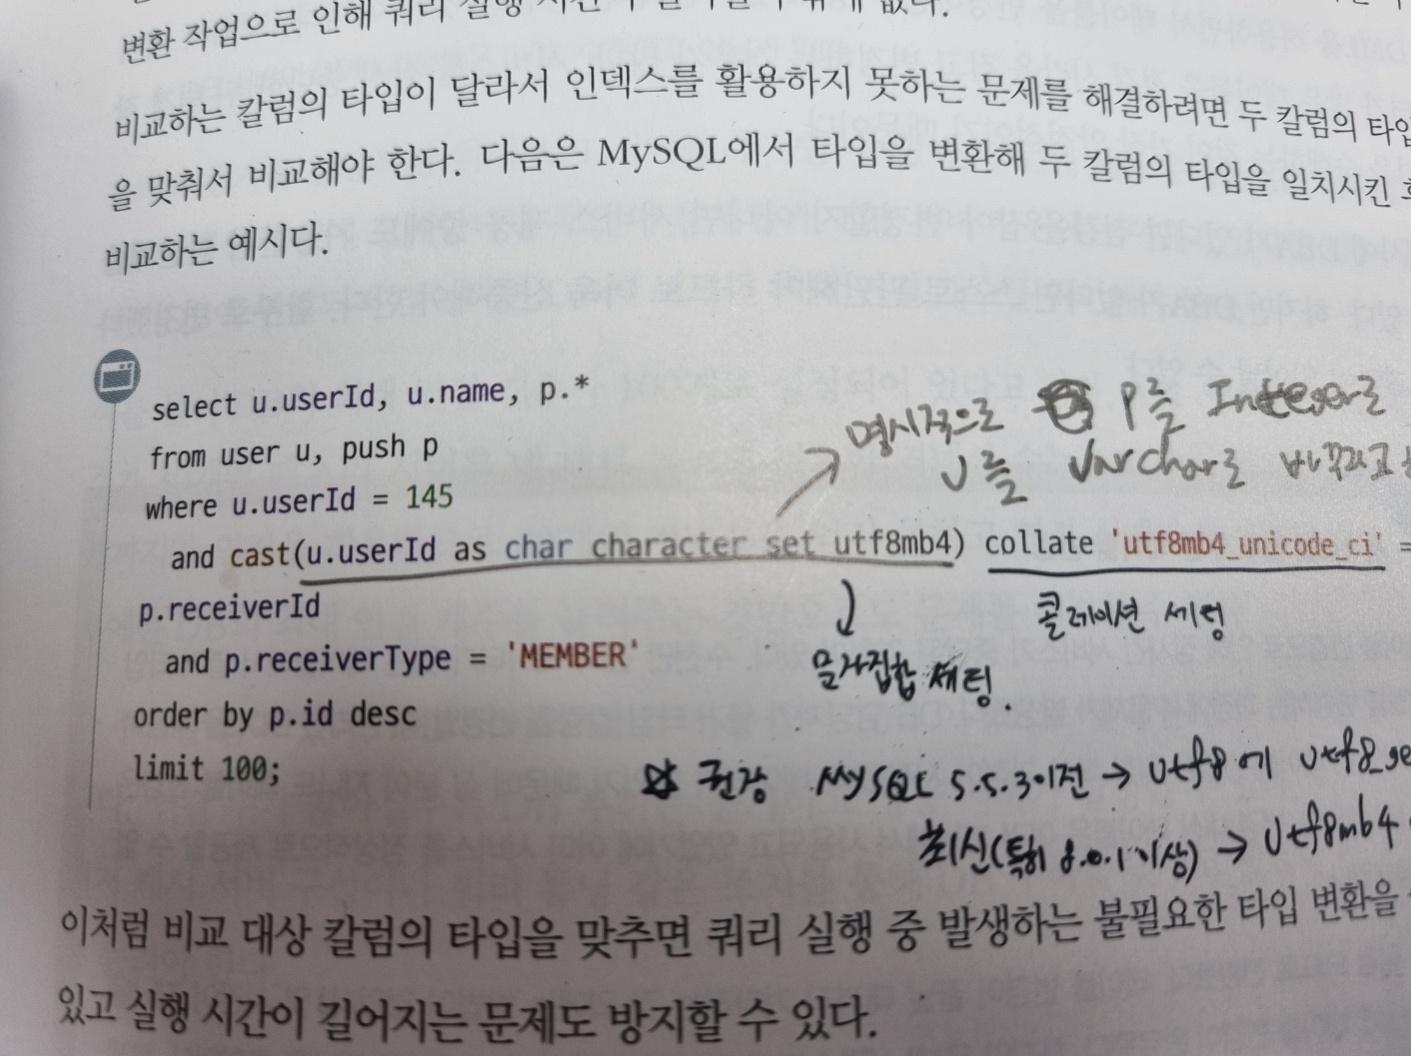 변환 작업으로 인해 쿼리 실행 시간이 없다.
비교하는 칼럼의 타입이 달라서 인덱스를 활용하지 못하는 문제를 해결하려면 두 칼럼의 타입
을 맞춰서 비교해야 한다. 다음은 MySQL에서 타입을 변환해 두 칼럼의 타입을 일치시킨
비교하는 예시다.
select u.userId, u.name, p.*
from user u, push p
where u.userId = 145
명시적으로 P를 Integer로
U를 Varchar로 바꾸라고
and cast(u.userId as char character set utf8mb4) collate 'utf8mb4_unicode_ci' =
p.receiverId
콜레이션 세팅
문자집합 세팅.
and p.receiverType = 'MEMBER'
order by p.id desc
limit 100;
권장 MySQL 5.5.3이전 → utf8에 utf8_ge
최신(특히 8.0.1이상) → utf8mb4
이처럼 비교 대상 칼럼의 타입을 맞추면 쿼리 실행 중 발생하는 불필요한 타입 변환을
있고 실행 시간이 길어지는 문제도 방지할 수 있다.